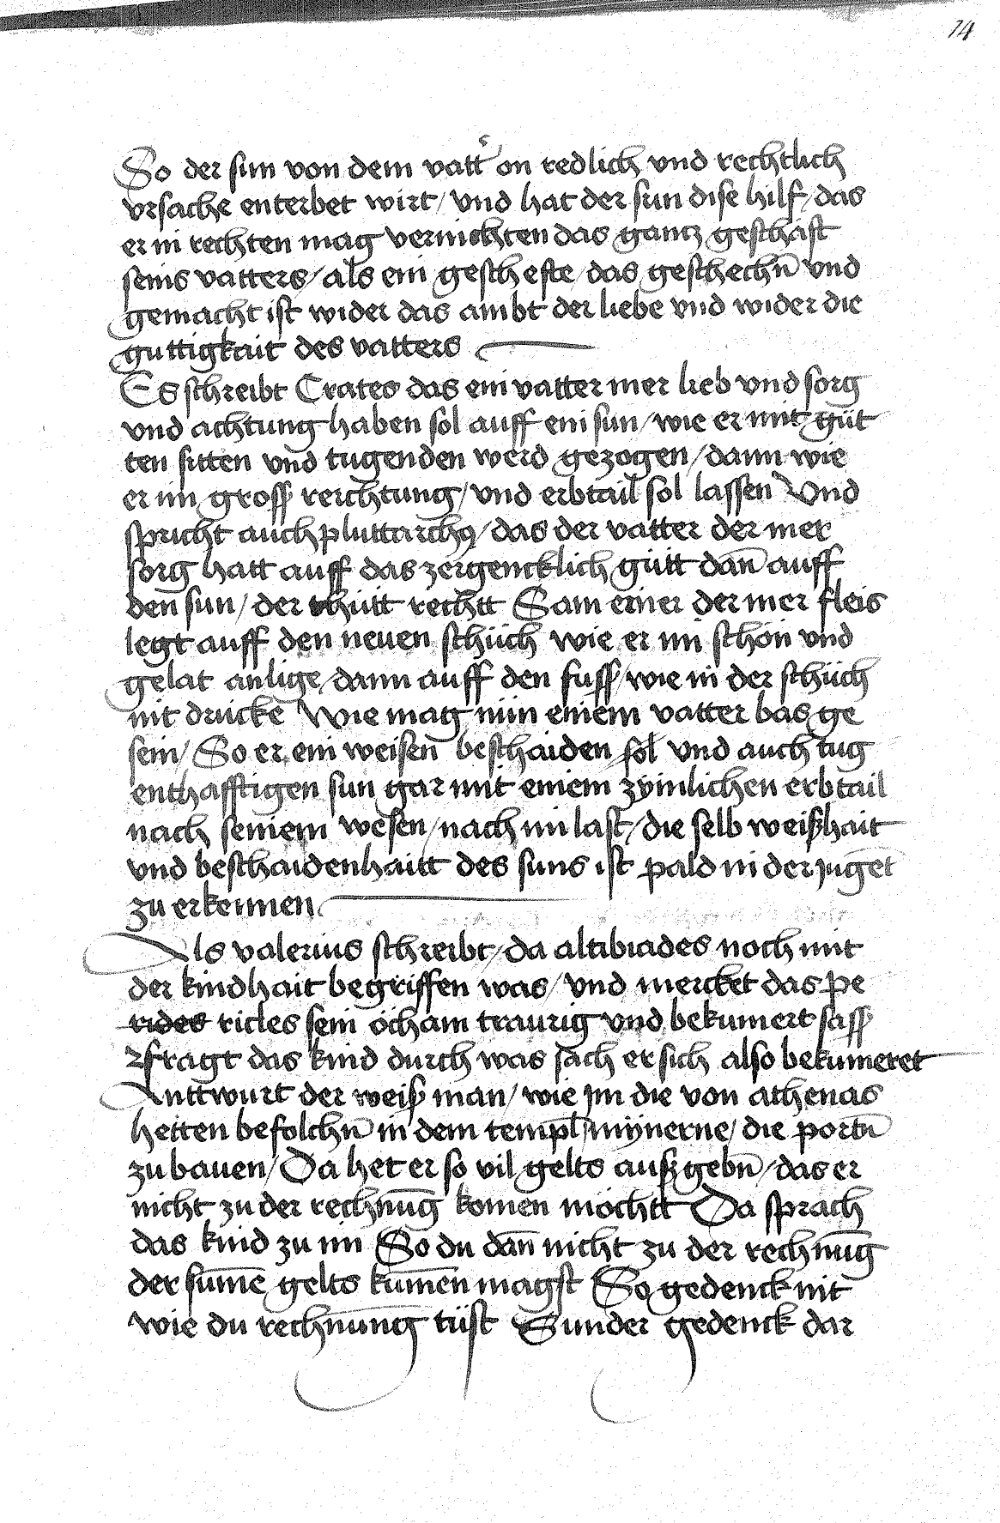 14
So der sun von dem vatt͛ on redlich vnd rechtlich
vrsache enterbet wirt / vnd hat der sun dise hilf / das
er in rechten mag vernichten das gantz geschäft
seins vatters / als ein gescheffte / das geschechn̄ vnd
gemacht ist wider das ambt der liebe vnd wider die
guttigkait des vatters
Es schreibt Crates das ein vatter mer lieb vnd sorg
vnd achtung haben sol auff ein sun / wie er mit güt
ten sitten vnd tugenden werd gezogen / dann wie
er im gross reichtung / vnd erbtail sol lassen Vnd
spricht auch pluttarchꝯ / das der vatter der mer
sorg hatt auff das zergencklich gütt dan̄ auff
den sun / der thütt rechtt Sam einer der mer fleis
legt auff den neuen schüch wie er im schön vnd
gelat anlige / dann auff den fuss / wie in der schüch
nit drucke Wie mag nün einem vatter bas ge
sein / So er ein weisen beschaiden sol vnd auch tug
enthafftigen sun gar mit einem zymlichen erbtail
nach seinem wesen / nach im last / die selb weißhait
vnd beschaidenhaitt des suns ist pald in der jugēt
zu erkennen
Als valerius schreibt / da altibiades noch mit
der kindhait begriffen was / vnd mercket das pe
rides ricles sein öcham traurig vnd bekumert sass
Er fragt das kind durch was sach er sich also bekumeret
Anttwurt der weiß man / wie jm die von athenas
hetten befolchn̄ in dem templ mynerne / die portn̄
zu bauen / Da het er so vil gelts auß gebn̄ / das er
nicht zu der rechnūg komen möchtt Da sprach
das kind zu im So du dan̄ nicht zu der rechnūg
der sum̄e gelts kum̄en magst So gedenck nit
wie du rechnung tüst Sunder gedenck dar